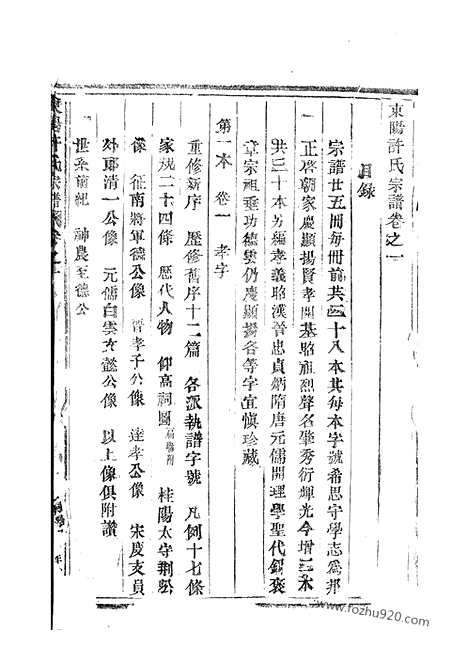 東陽許氏宗譜卷之一
目錄
宗譜廿五冊每冊前共四十八本其每本字號希思守學志爲邦
正啓朝家慶顯揚賢孝開基昭祖烈聲名肇秀衍輝光今增三本
共三十本另編孝義昭漢晉忠貞炳隋唐元儒開理學聖代錫褒
章宗祖垂功德雲仍慶顯揚各等字宜慎珍藏
第一本 卷一 孝字
重修新序 歷修舊序十二篇 各派執譜字號 凡例十七條
家規二十四條 歷代人物 仰高祠圖 桂陽太守荆公
像 征南將軍德公像 晉孝子公像 達孝公像 宋度支員
外郎清一公像 元儒白雲文懿公像 以上像俱附讚
世系前紀 神農至德公
東陽許氏宗譜 卷之一
www.fozhu920.com